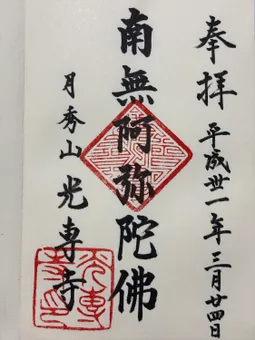 奉拝 平成卅一年三月廿四日
南無阿弥陀佛
月秀山 光專寺